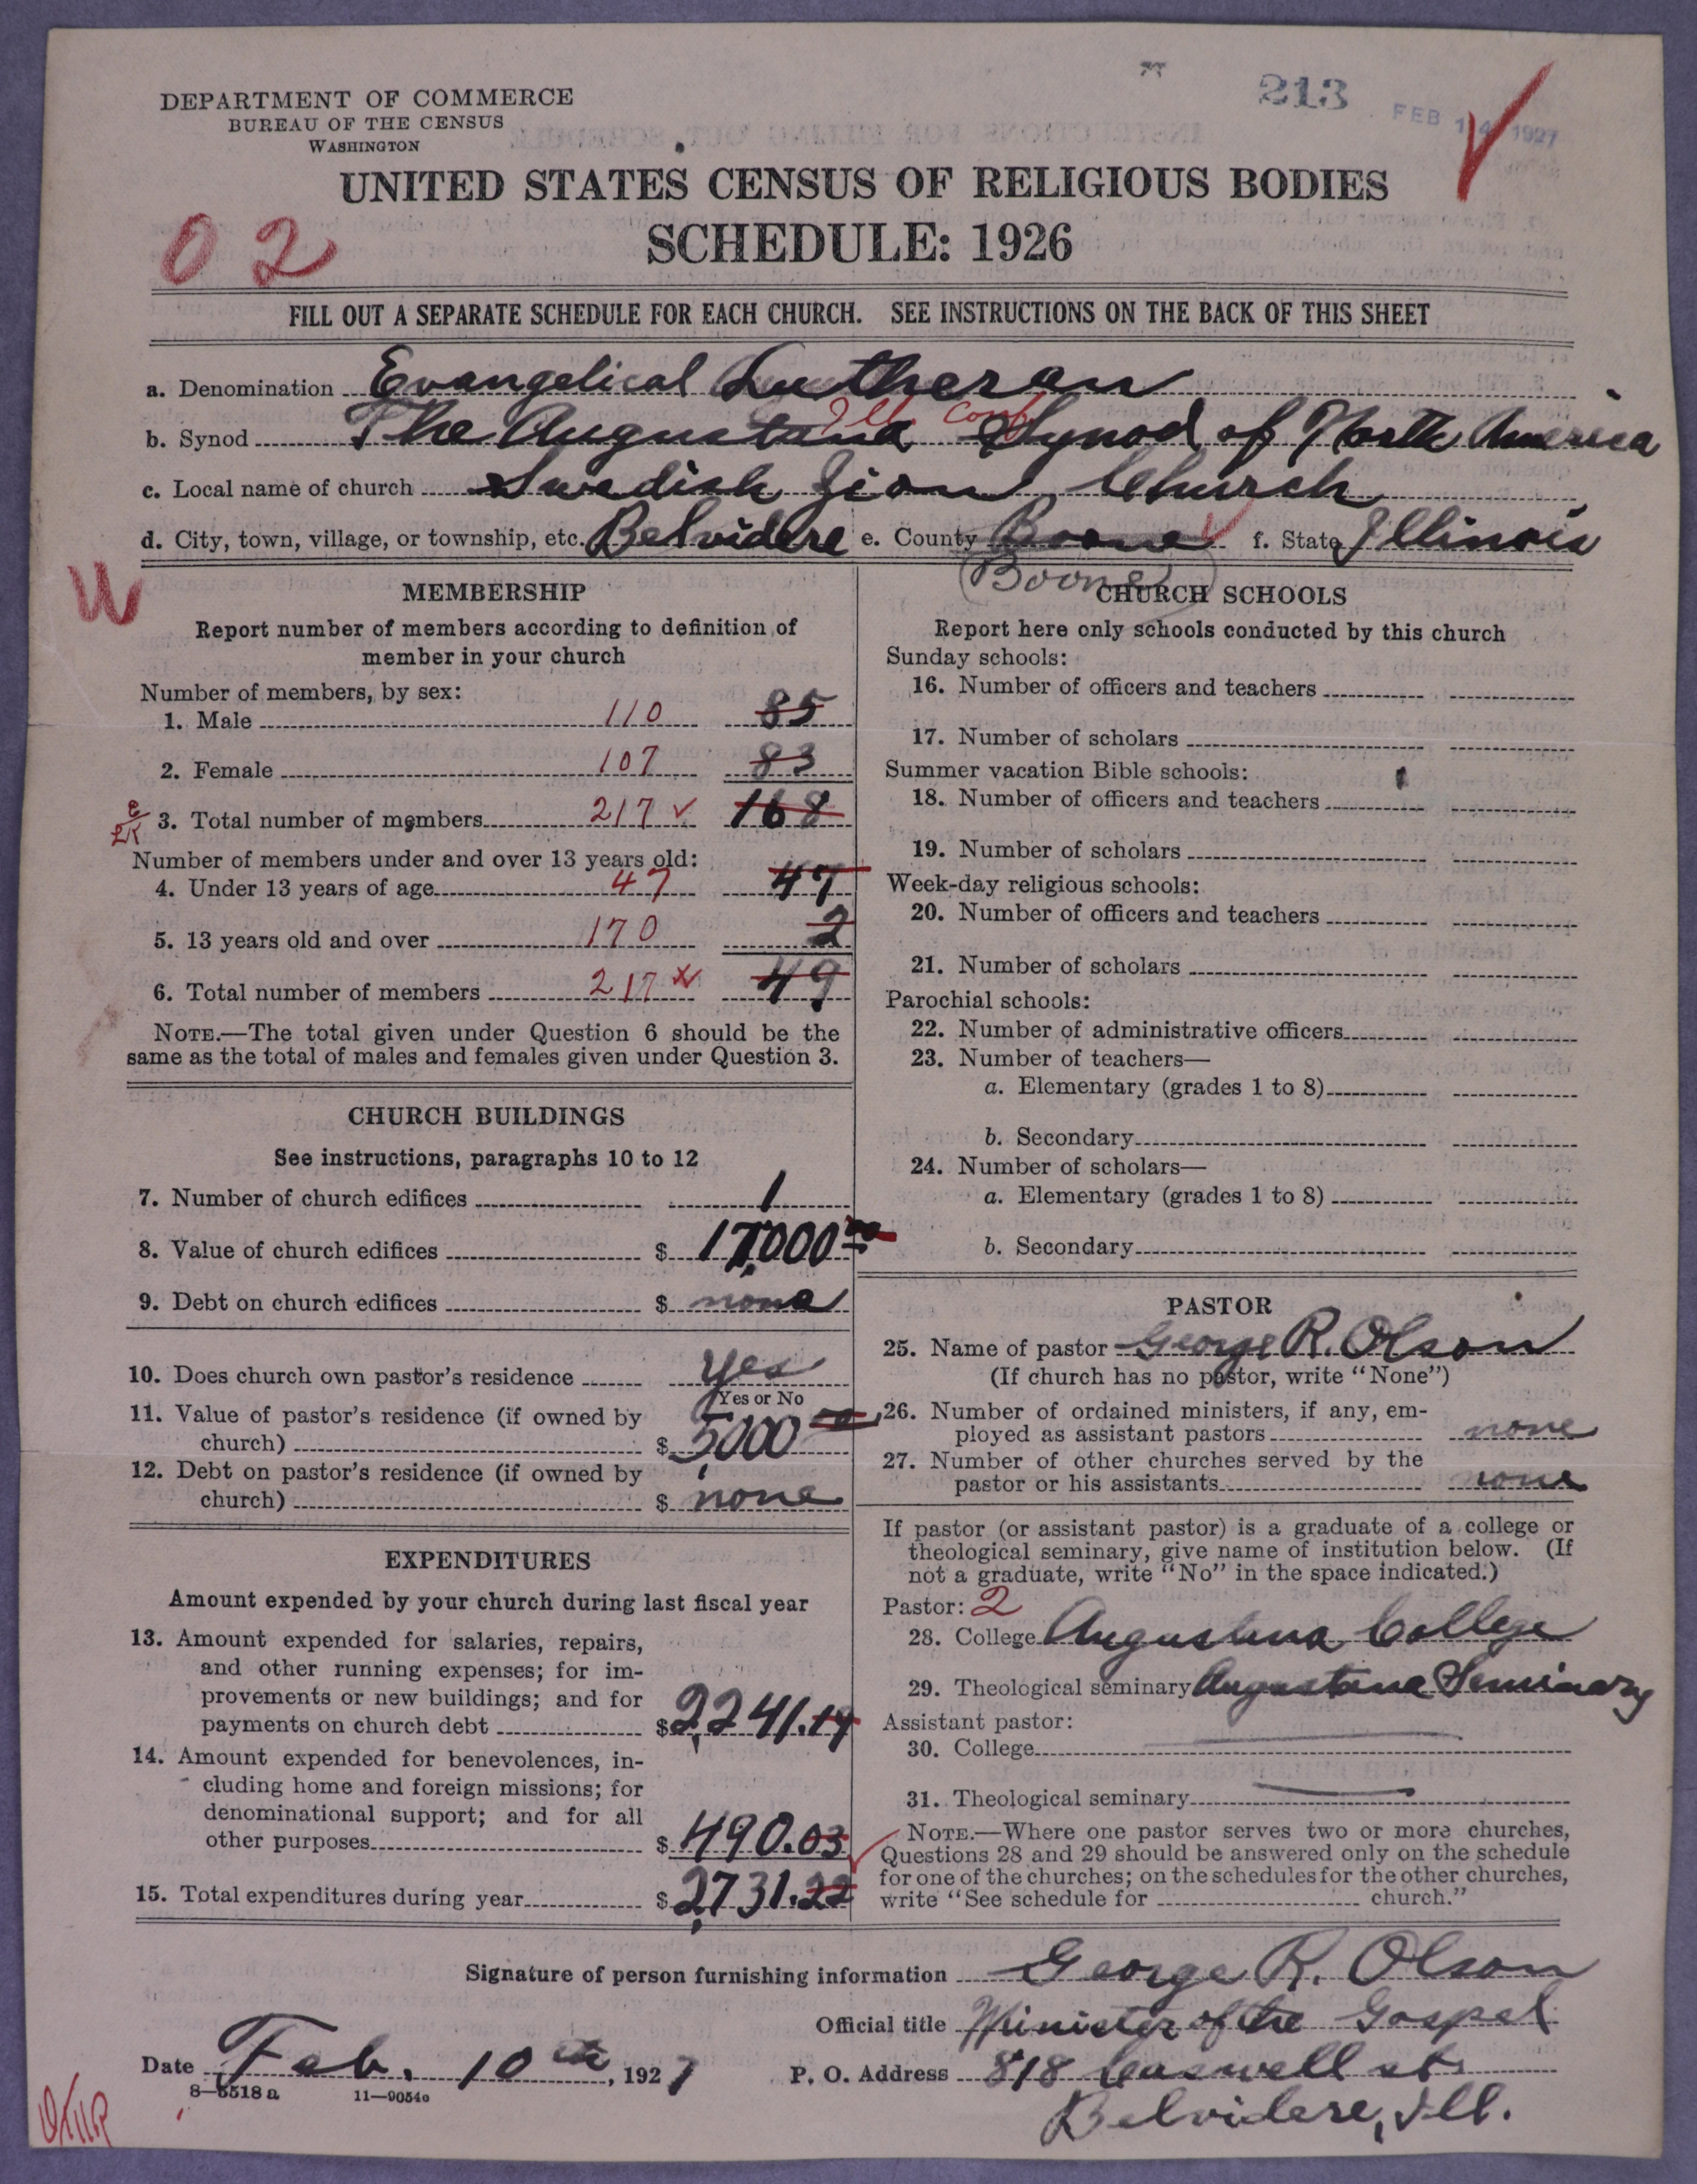 213
FEB 14 1927
DEPARTMENT OF COMMERCE
BUREAU OF THE CENSUS
WASHINGTON
UNITED STATES CENSUS OF RELIGIOUS BODIES
SCHEDULE: 1926
02
FILL OUT A SEPARATE SCHEDULE FOR EACH CHURCH. SEE INSTRUCTIONS ON THE BACK OF THIS SHEET
a. Denomination Evangelical Lutheran
Ill. Conf.
b. Synod The Augustana Synod of North America
c. Local name of church Swedish Zion Church
d. City, town, village, or township, etc. Belvidere e. County Boone f. State Illinois
(Boone)
U
MEMBERSHIP
Report number of members according to definition of
member in your church
Number of members, by sex:
1. Male 110 85
2. Female 107 83
3. Total number of members 217 168
Number of members under and over 13 years old:
4. Under 13 years of age 47 47
5. 13 years old and over 170 2
6. Total number of members 217 49
NOTE.—The total given under Question 6 should be the
same as the total of males and females given under Question 3.
CHURCH BUILDINGS
See instructions, paragraphs 10 to 12
7. Number of church edifices 1
8. Value of church edifices $ 17,000
9. Debt on church edifices $ none
10. Does church own pastor's residence yes
Yes or No
11. Value of pastor's residence (if owned by
church) $ 5,000
12. Debt on pastor's residence (if owned by
church) $ none
EXPENDITURES
Amount expended by your church during last fiscal year
13. Amount expended for salaries, repairs,
and other running expenses; for im-
provements or new buildings; and for
payments on church debt $ 2,241.19
14. Amount expended for benevolences, in-
cluding home and foreign missions; for
denominational support; and for all
other purposes $ 490.03
15. Total expenditures during year $ 2,731.22
CHURCH SCHOOLS
Report here only schools conducted by this church
Sunday schools:
16. Number of officers and teachers
17. Number of scholars
Summer vacation Bible schools:
18. Number of officers and teachers
19. Number of scholars
Week-day religious schools:
20. Number of officers and teachers
21. Number of scholars
Parochial schools:
22. Number of administrative officers
23. Number of teachers—
a. Elementary (grades 1 to 8)
b. Secondary
24. Number of scholars—
a. Elementary (grades 1 to 8)
b. Secondary
PASTOR
25. Name of pastor George R. Olson
(If church has no pastor, write "None")
26. Number of ordained ministers, if any, em-
ployed as assistant pastors none
27. Number of other churches served by the
pastor or his assistants none
If pastor (or assistant pastor) is a graduate of a college or
theological seminary, give name of institution below. (If
not a graduate, write "No" in the space indicated.)
Pastor: 2
28. College Augustana College
29. Theological seminary Augustana Seminary
Assistant pastor:
30. College
31. Theological seminary
NOTE.—Where one pastor serves two or more churches,
Questions 28 and 29 should be answered only on the schedule
for one of the churches; on the schedules for the other churches,
write "See schedule for church."
Signature of person furnishing information George R. Olson
Official title Minister of the Gospel
Date Feb. 10th, 1927 P. O. Address 818 Caswell st.
8—5518a 11—9054a
Belvidere, Ill.